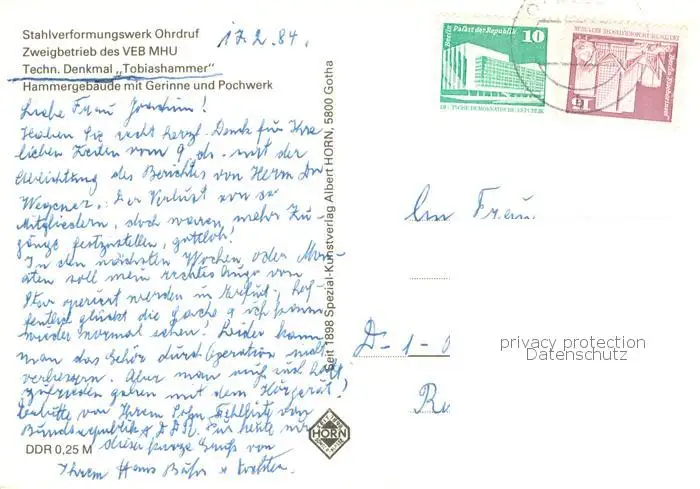 Stahlverformungswerk Ohrdruf
Zweigbetrieb des VEB MHU
Techn. Denkmal „Tobiashammer“
Hammergebäude mit Gerinne und Pochwerk
17.2.84.
Liebe Frau
Haben Sie recht herzl. Dank für Ihre
lieben Zeilen vom 9. ds. mit der
des Berichtes von Herrn Dr.
Wegener. Der Verlust von
Mitgliedern, doch waren mehr Zu-
gänge festzustellen, gottlob!
In den nächsten Wochen oder Mon-
aten soll mein rechtes Auge vom
Star operiert werden in Erfurt, hof-
fentlich glückt die Sache u. ich kann
wieder normal sehen! Leider kann
man das Gehör durch Operation nicht
verbessern. Aber man muß sich halt
zufrieden geben mit dem Hörgerät!
von Ihrem Sohn
Bundesrepublik u. DDR. Für heute nur
dieser kurze Gruß von
Ihrem Hans
DDR 0,25 M
Seit 1898 Spezial-Kunstverlag Albert HORN, 5800 Gotha
HORN
Berlin
Palast der Republik
10
DEUTSCHE DEMOKRATISCHE REPUBLIK
15
DEUTSCHE DEMOKRATISCHE REPUBLIK
An Frau
D-1-
privacy protection
Datenschutz